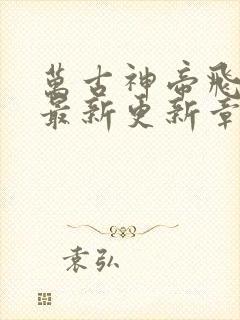 萬古神帝飛
最新更新章
袁弘